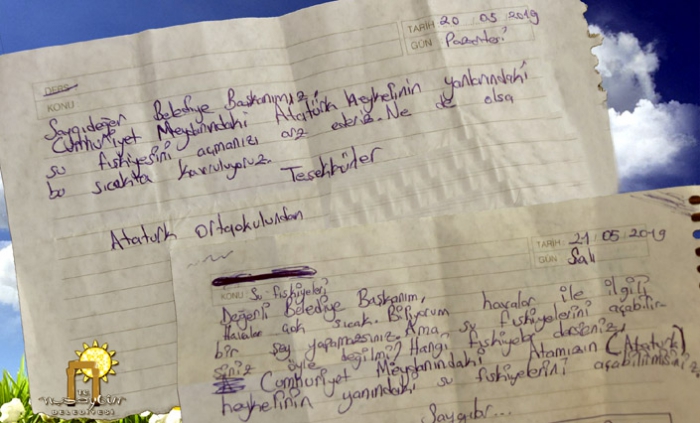 TARİH 20 05 2019
GÜN Pazartesi
DERS
KONU
Saygıdeğer Belediye Başkanımız,
Cumhuriyet Meydanındaki Atatürk Heykelinin yanlarındaki
su fıskiyesini açmanızı arz ederiz. Ne de olsa
bu sıcakta kavruluyoruz.
Teşekkürler
Atatürk Ortaokulundan
TARİH 21 05 2019
GÜN Salı
KONU Su fıskiyeleri
Değerli Belediye Başkanım,
Havalar çok sıcak. Biliyorum havalar ile ilgili
bir şey yapamazsınız. Ama su fıskiyelerini açabilir-
siniz öyle değil mi? Hangi fıskiyeler derseniz,
Cumhuriyet Meydanındaki Atamızın (Atatürk)
heykelinin yanındaki su fıskiyelerini açabilirsiniz
Saygılar...
BELEDİYESİ